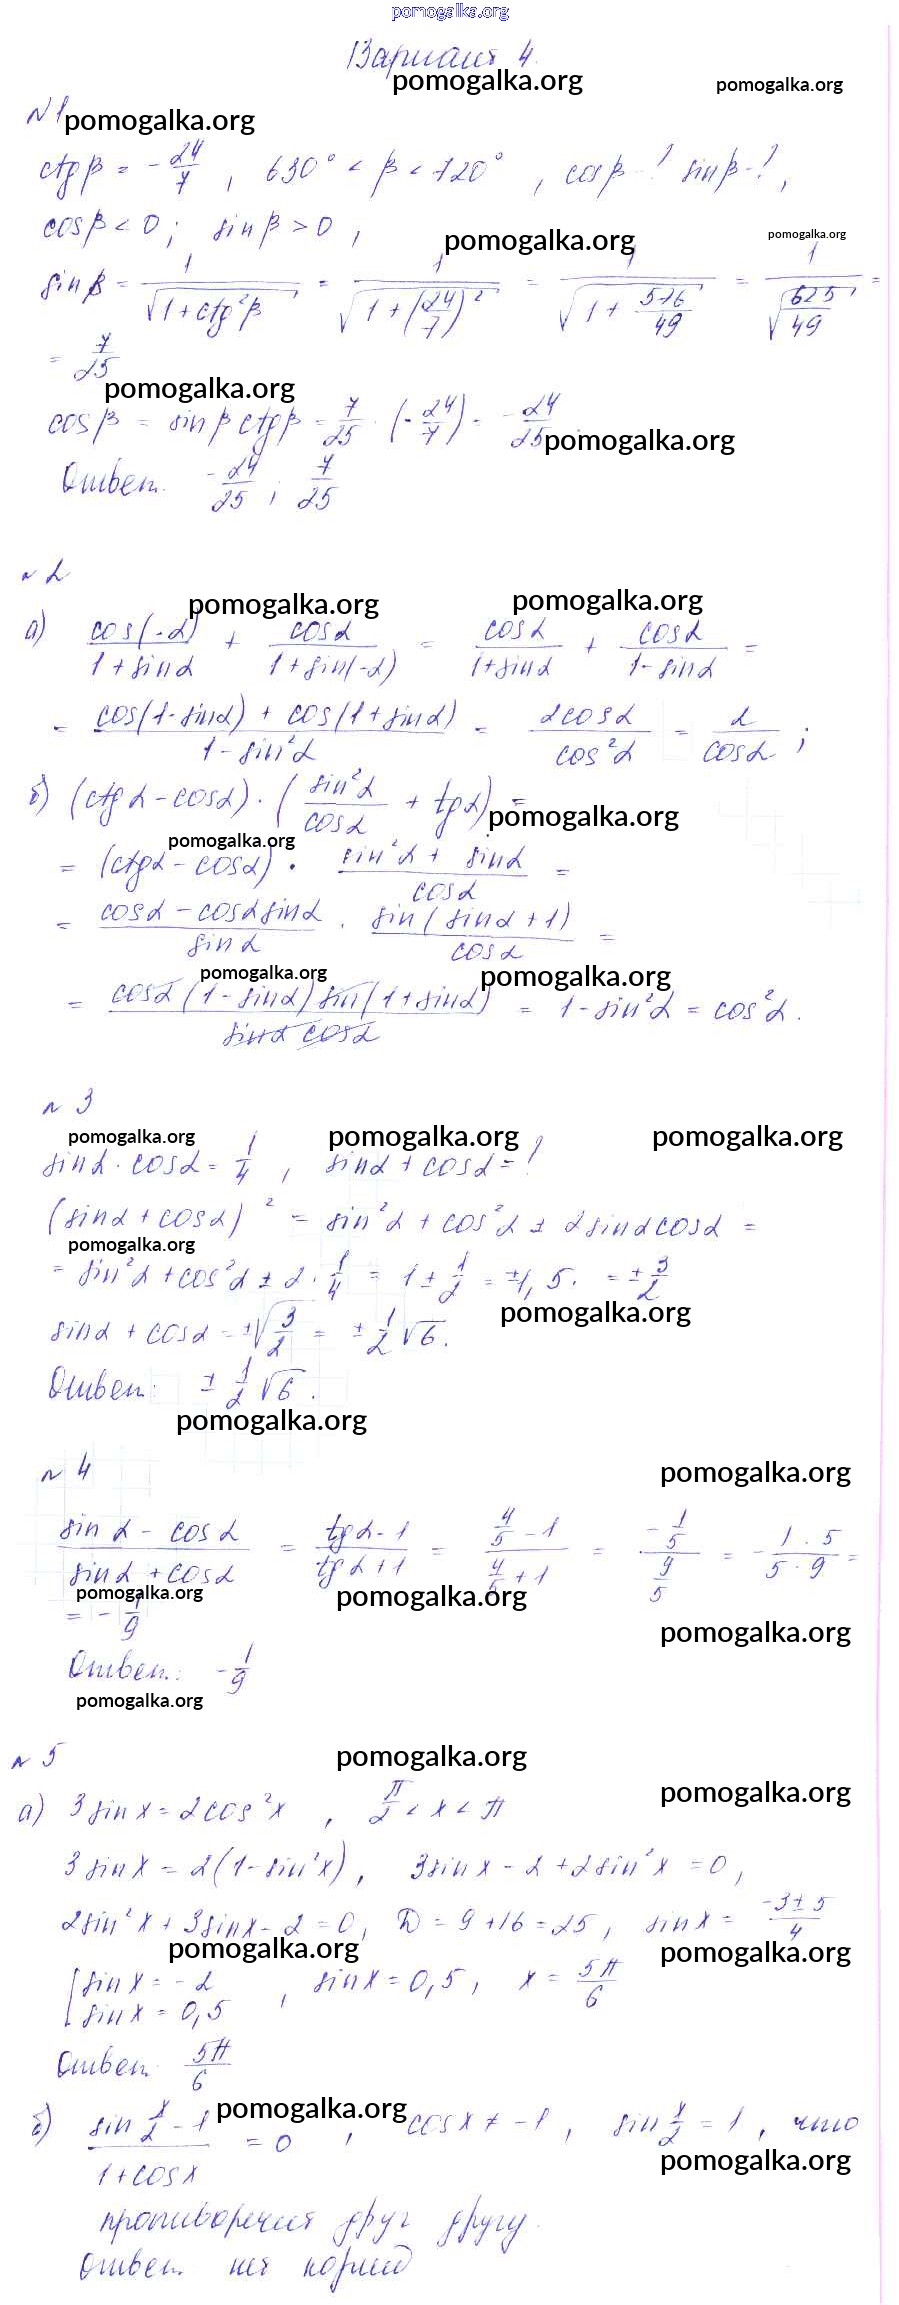 pomogalka.org
Вариант 4.
pomogalka.org pomogalka.org
№1 pomogalka.org
ctgβ = -24/7, 630° < β < 720°, cosβ-? sinβ-?,
cosβ < 0; sinβ > 0,
pomogalka.org pomogalka.org
sinβ = 1/√(1+ctg²β) = 1/√(1+(24/7)²) = 1/√(1+576/49) = 1/√(625/49) =
= 7/25
pomogalka.org
cosβ = sinβ ctgβ = 7/25 · (-24/7) = -24/25
pomogalka.org
Ответ. -24/25; 7/25
№2
pomogalka.org pomogalka.org
а) cos(-α)/(1+sinα) + cosα/(1+sin(-α)) = cosα/(1+sinα) + cosα/(1-sinα) =
= (cos(1-sinα) + cos(1+sinα))/(1-sin²α) = 2cosα/cos²α = 2/cosα;
б) (ctgα-cosα)·(sin²α/cosα + tgα) =
pomogalka.org
pomogalka.org
= (ctgα-cosα) · (sin²α + sinα)/cosα =
= (cosα-cosαsinα)/sinα · sin(sinα+1)/cosα =
pomogalka.org pomogalka.org
= cosα(1-sinα)sin(1+sinα)/(sinα cosα) = 1-sin²α = cos²α.
№3
pomogalka.org pomogalka.org pomogalka.org
sinα·cosα = 1/4, sinα+cosα = ?
(sinα+cosα)² = sin²α+cos²α ± 2sinαcosα =
pomogalka.org
= sin²α+cos²α ± 2·1/4 = 1 ± 1/2 = ±1,5. = ±3/2
pomogalka.org
sinα+cosα = ±√(3/2) = ±1/2√6.
Ответ: ±1/2√6.
pomogalka.org
№4
pomogalka.org
(sinα-cosα)/(sinα+cosα) = (tgα-1)/(tgα+1) = (4/5-1)/(4/5+1) = (-1/5)/(9/5) = -(1·5)/(5·9) =
pomogalka.org pomogalka.org
= -1/9
pomogalka.org
Ответ: -1/9
pomogalka.org
№5
pomogalka.org
pomogalka.org
а) 3sinx = 2cos²x, π/2 < x < π
3sinx = 2(1-sin²x), 3sinx-2+2sin²x = 0,
2sin²x+3sinx-2 = 0, D = 9+16 = 25, sinx = (-3±5)/4
pomogalka.org pomogalka.org
[sinx = -2
sinx = 0,5, sinx = 0,5, x = 5π/6
Ответ. 5π/6
pomogalka.org
б) (sin x/2 - 1)/(1+cosx) = 0, cosx ≠ -1, sin x/2 = 1, что
pomogalka.org
противоречит друг другу.
Ответ. нет корней